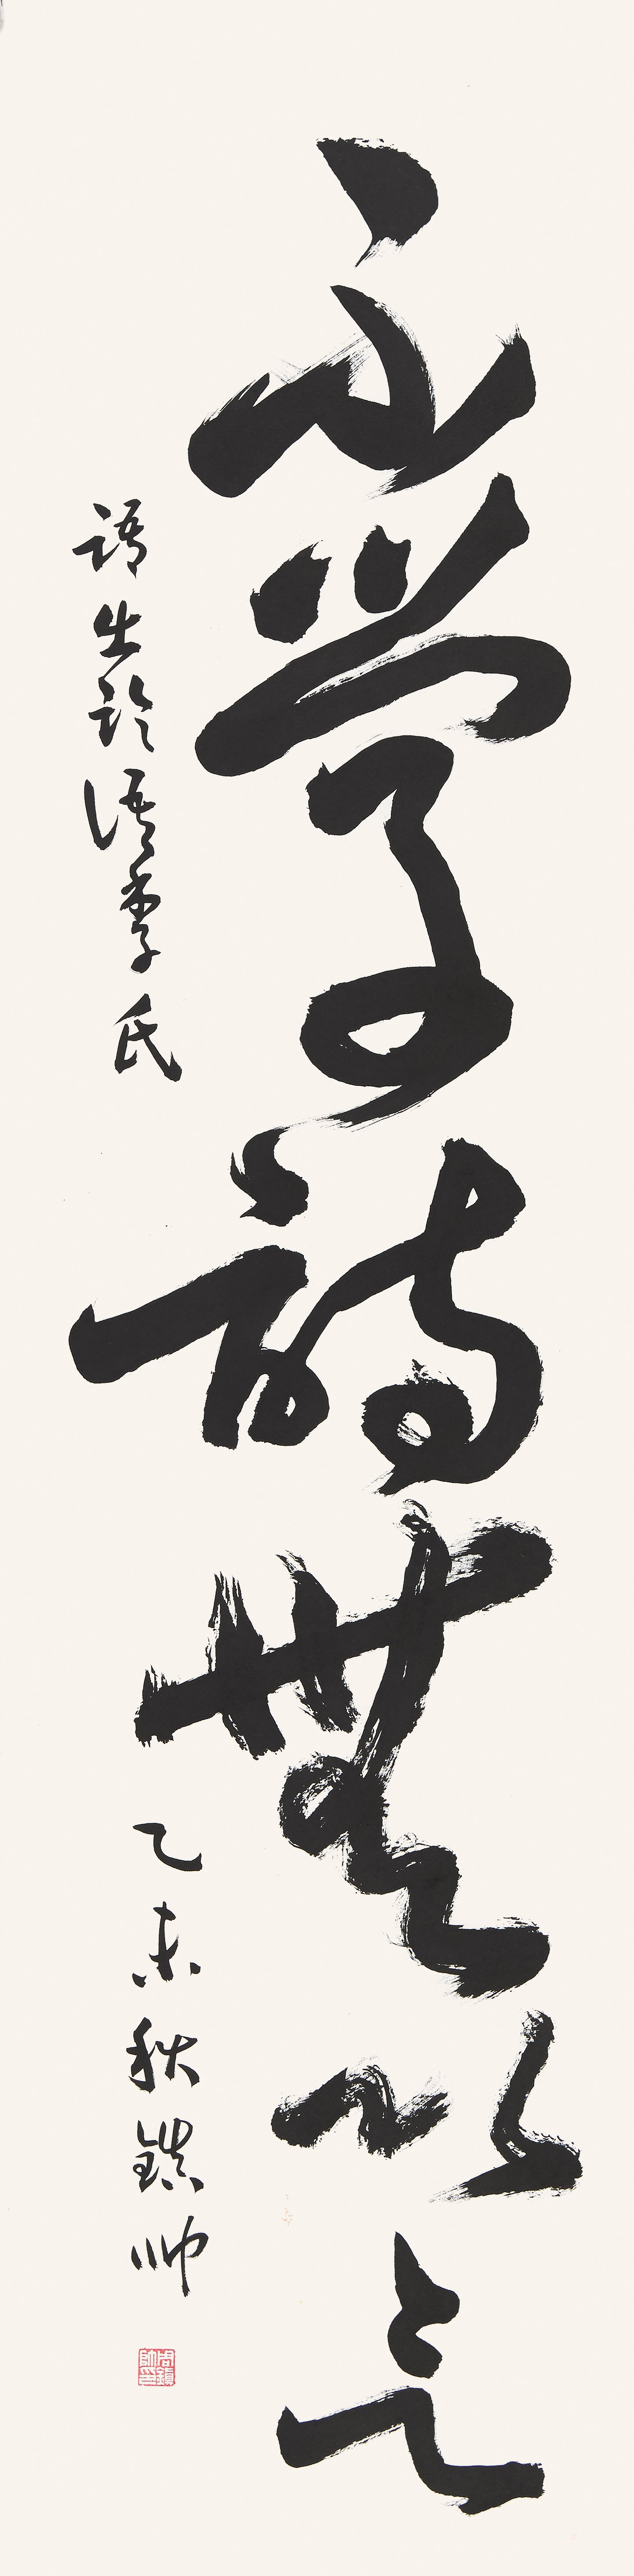 不學詩無以言
語出論語季氏
乙未秋鎮帥
周鎮帥印